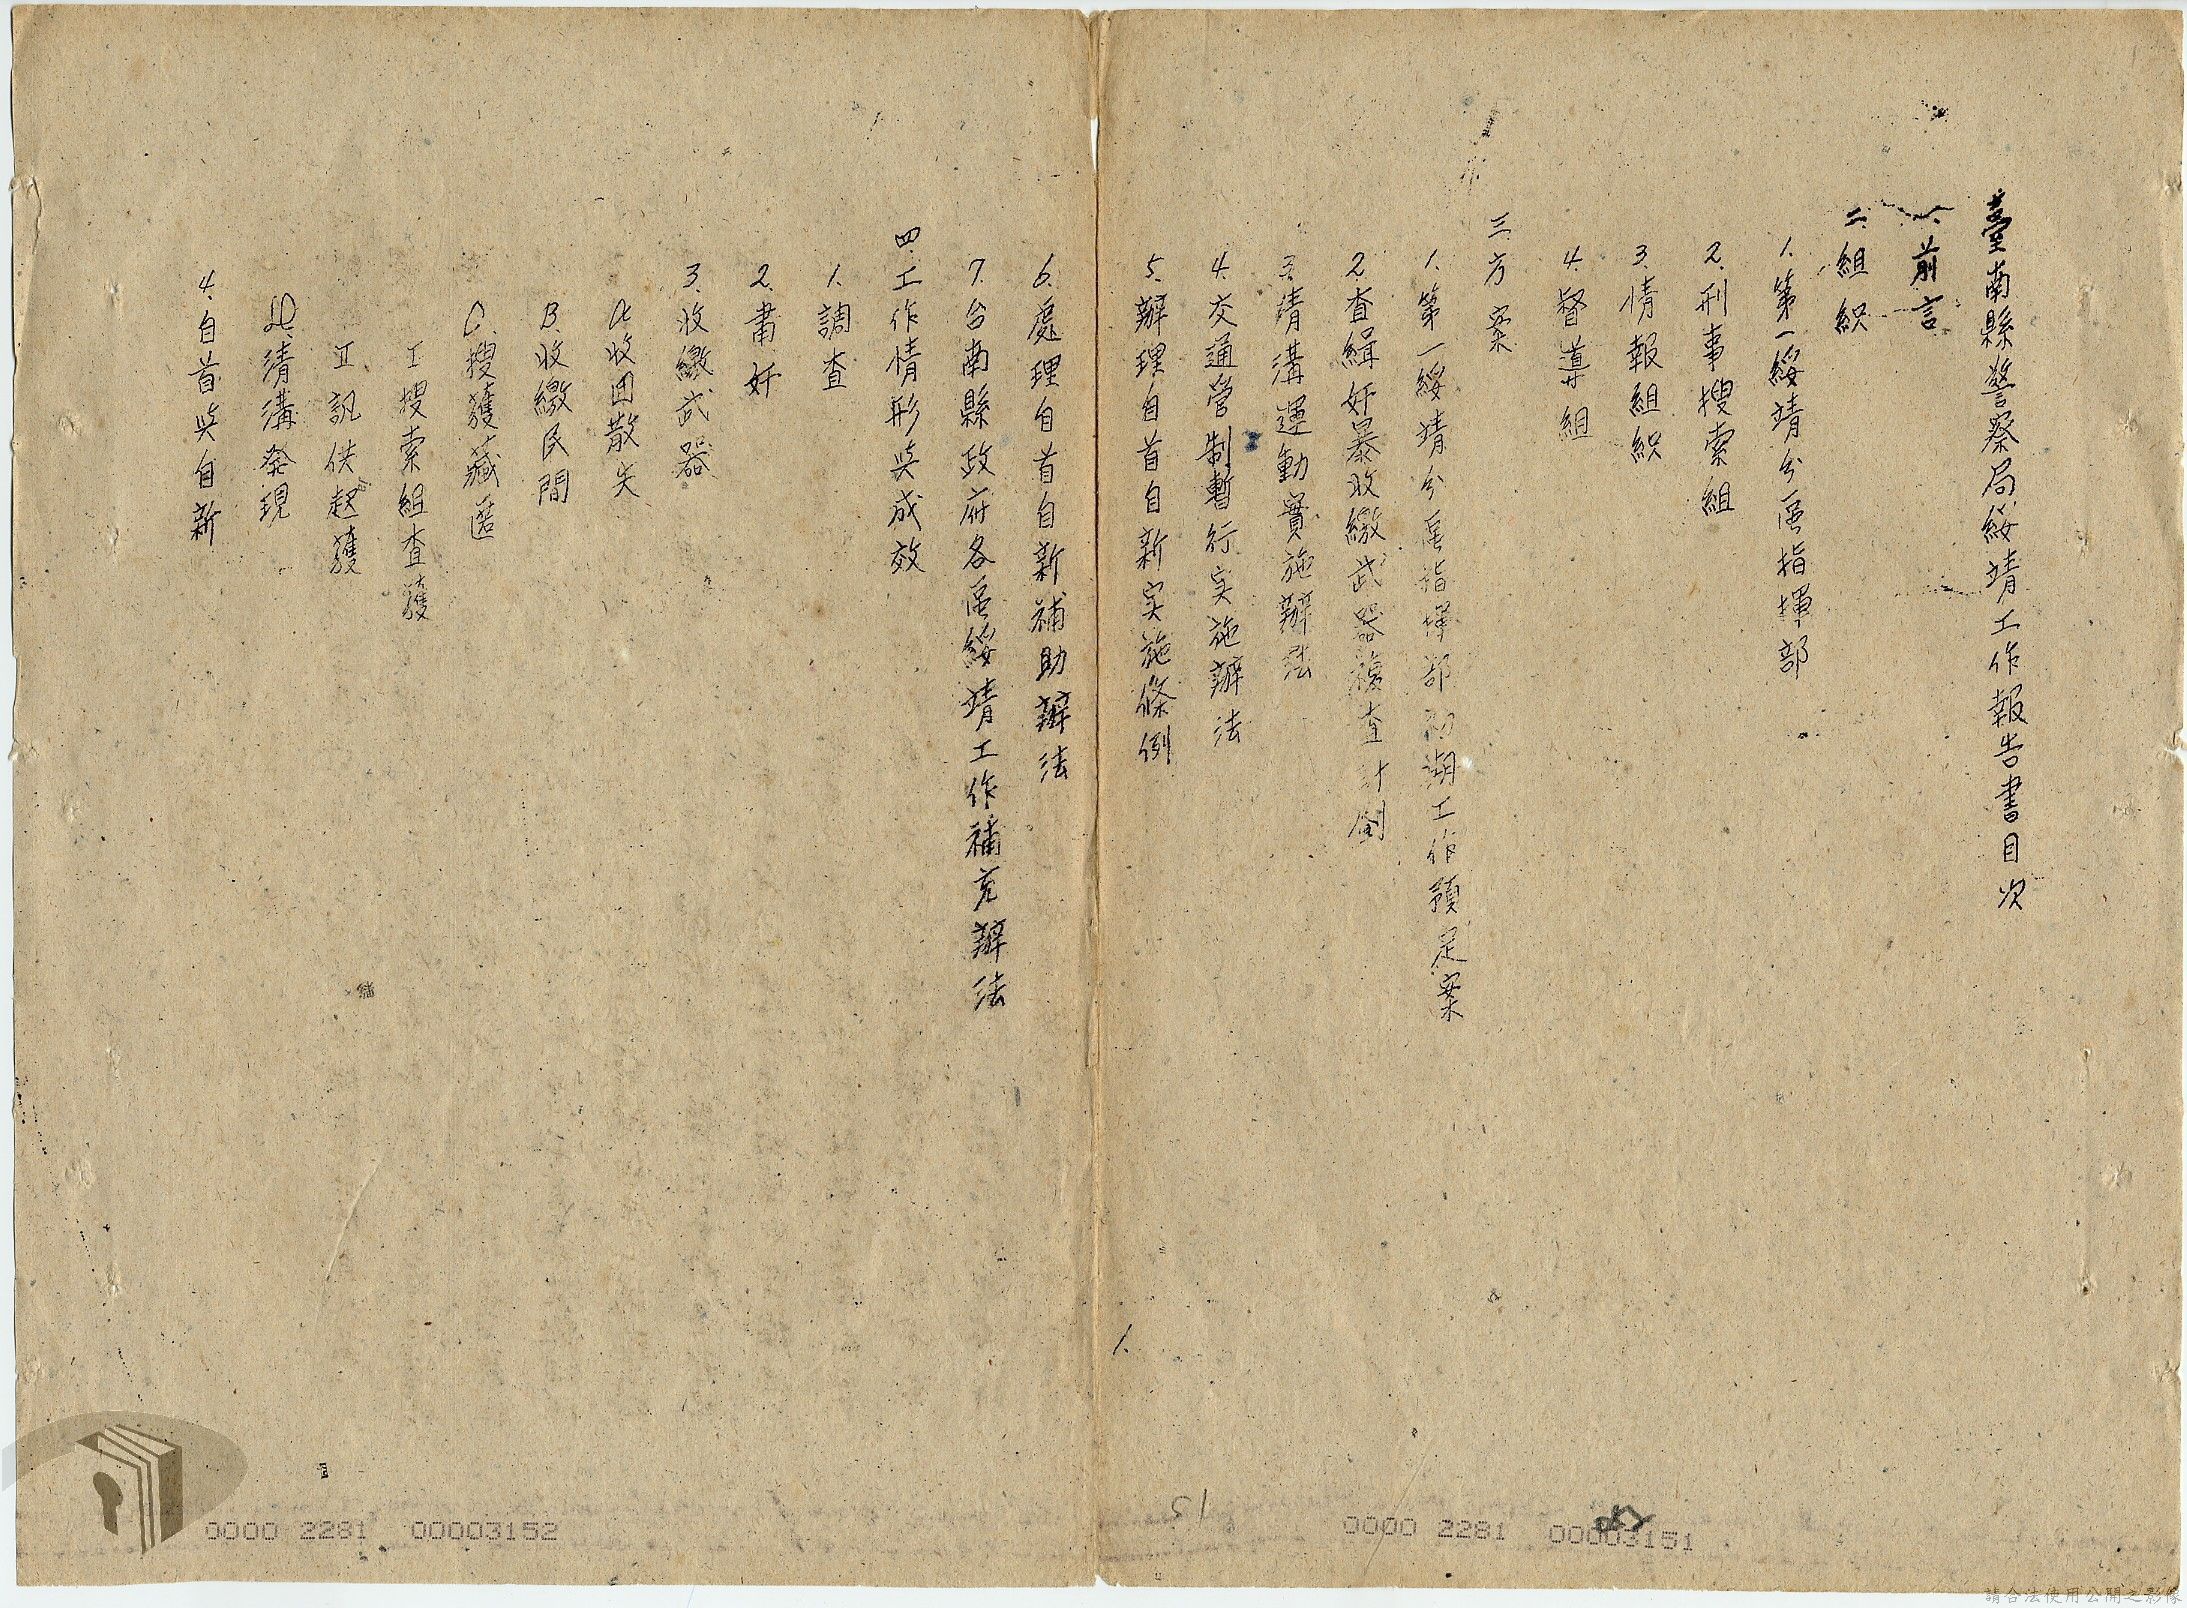 臺南縣警察局綏靖工作報告書目次
一、前言
二、組織
1.第一綏靖分區指揮部
2.刑事搜索組
3.情報組織
4.督導組
三、方案
1.第一綏靖分區指揮部初期工作預定案
2.查緝奸暴收繳武器複查計劃
3.清溝運動實施辦法
4.交通營制暫行实施辦法
5.辦理自首自新实施條例
6.處理自首自新補助辦法
7.台南縣政府各區綏靖工作補充辦法
四、工作情形與成效
1.調查
2.肅奸
3.收繳武器
A.收回散失
B.收繳民間
C.搜獲藏匿
I 搜索組查獲
II 訊供起獲
D.清溝發現
4.自首與自新
1.
51
0000 2281 00003151
0000 2281 00003152
請合法使用公開之影像